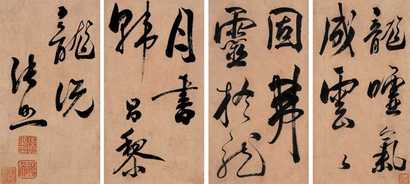 龍噓氣
成雲々
固弗
靈於龍
也書
韓昌黎
龍說
張照